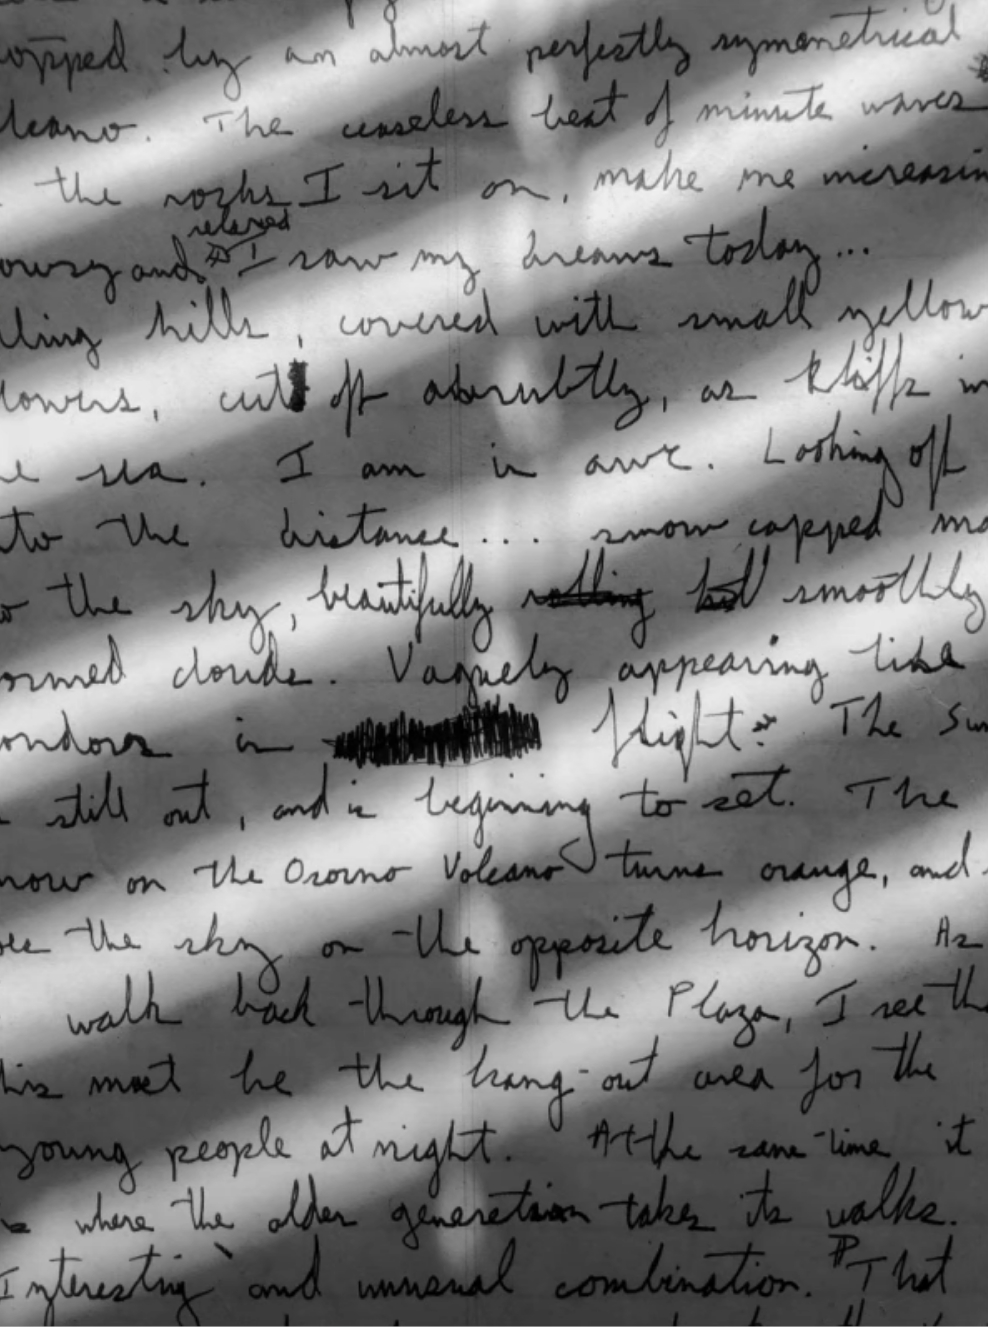 opped by an almost perfectly symmetrical
lcano. The ceaseless beat of minute waves
the rocks I sit on, make me increasin
relaxed
owsy and I saw my dreams today...
lling hills, covered with small yellow
lowers, cut off abrubtly, as kliffs in
e sea. I am in awe. Looking off
to the distance... snow capped mo
o the sky, beautifully rolling but smoothly
ormed clouds. Vaguely appearing like
ondors in flight. The Sun
still out, and is beginning to set. The
now on the Osorno Volcano turns orange, and
ee the sky on the opposite horizon. As
walk back through the Plaza, I see th
his must be the hang-out area for the
young people at night. At the same time it
is where the older generation takes its walks.
Interesting and unusual combination. That